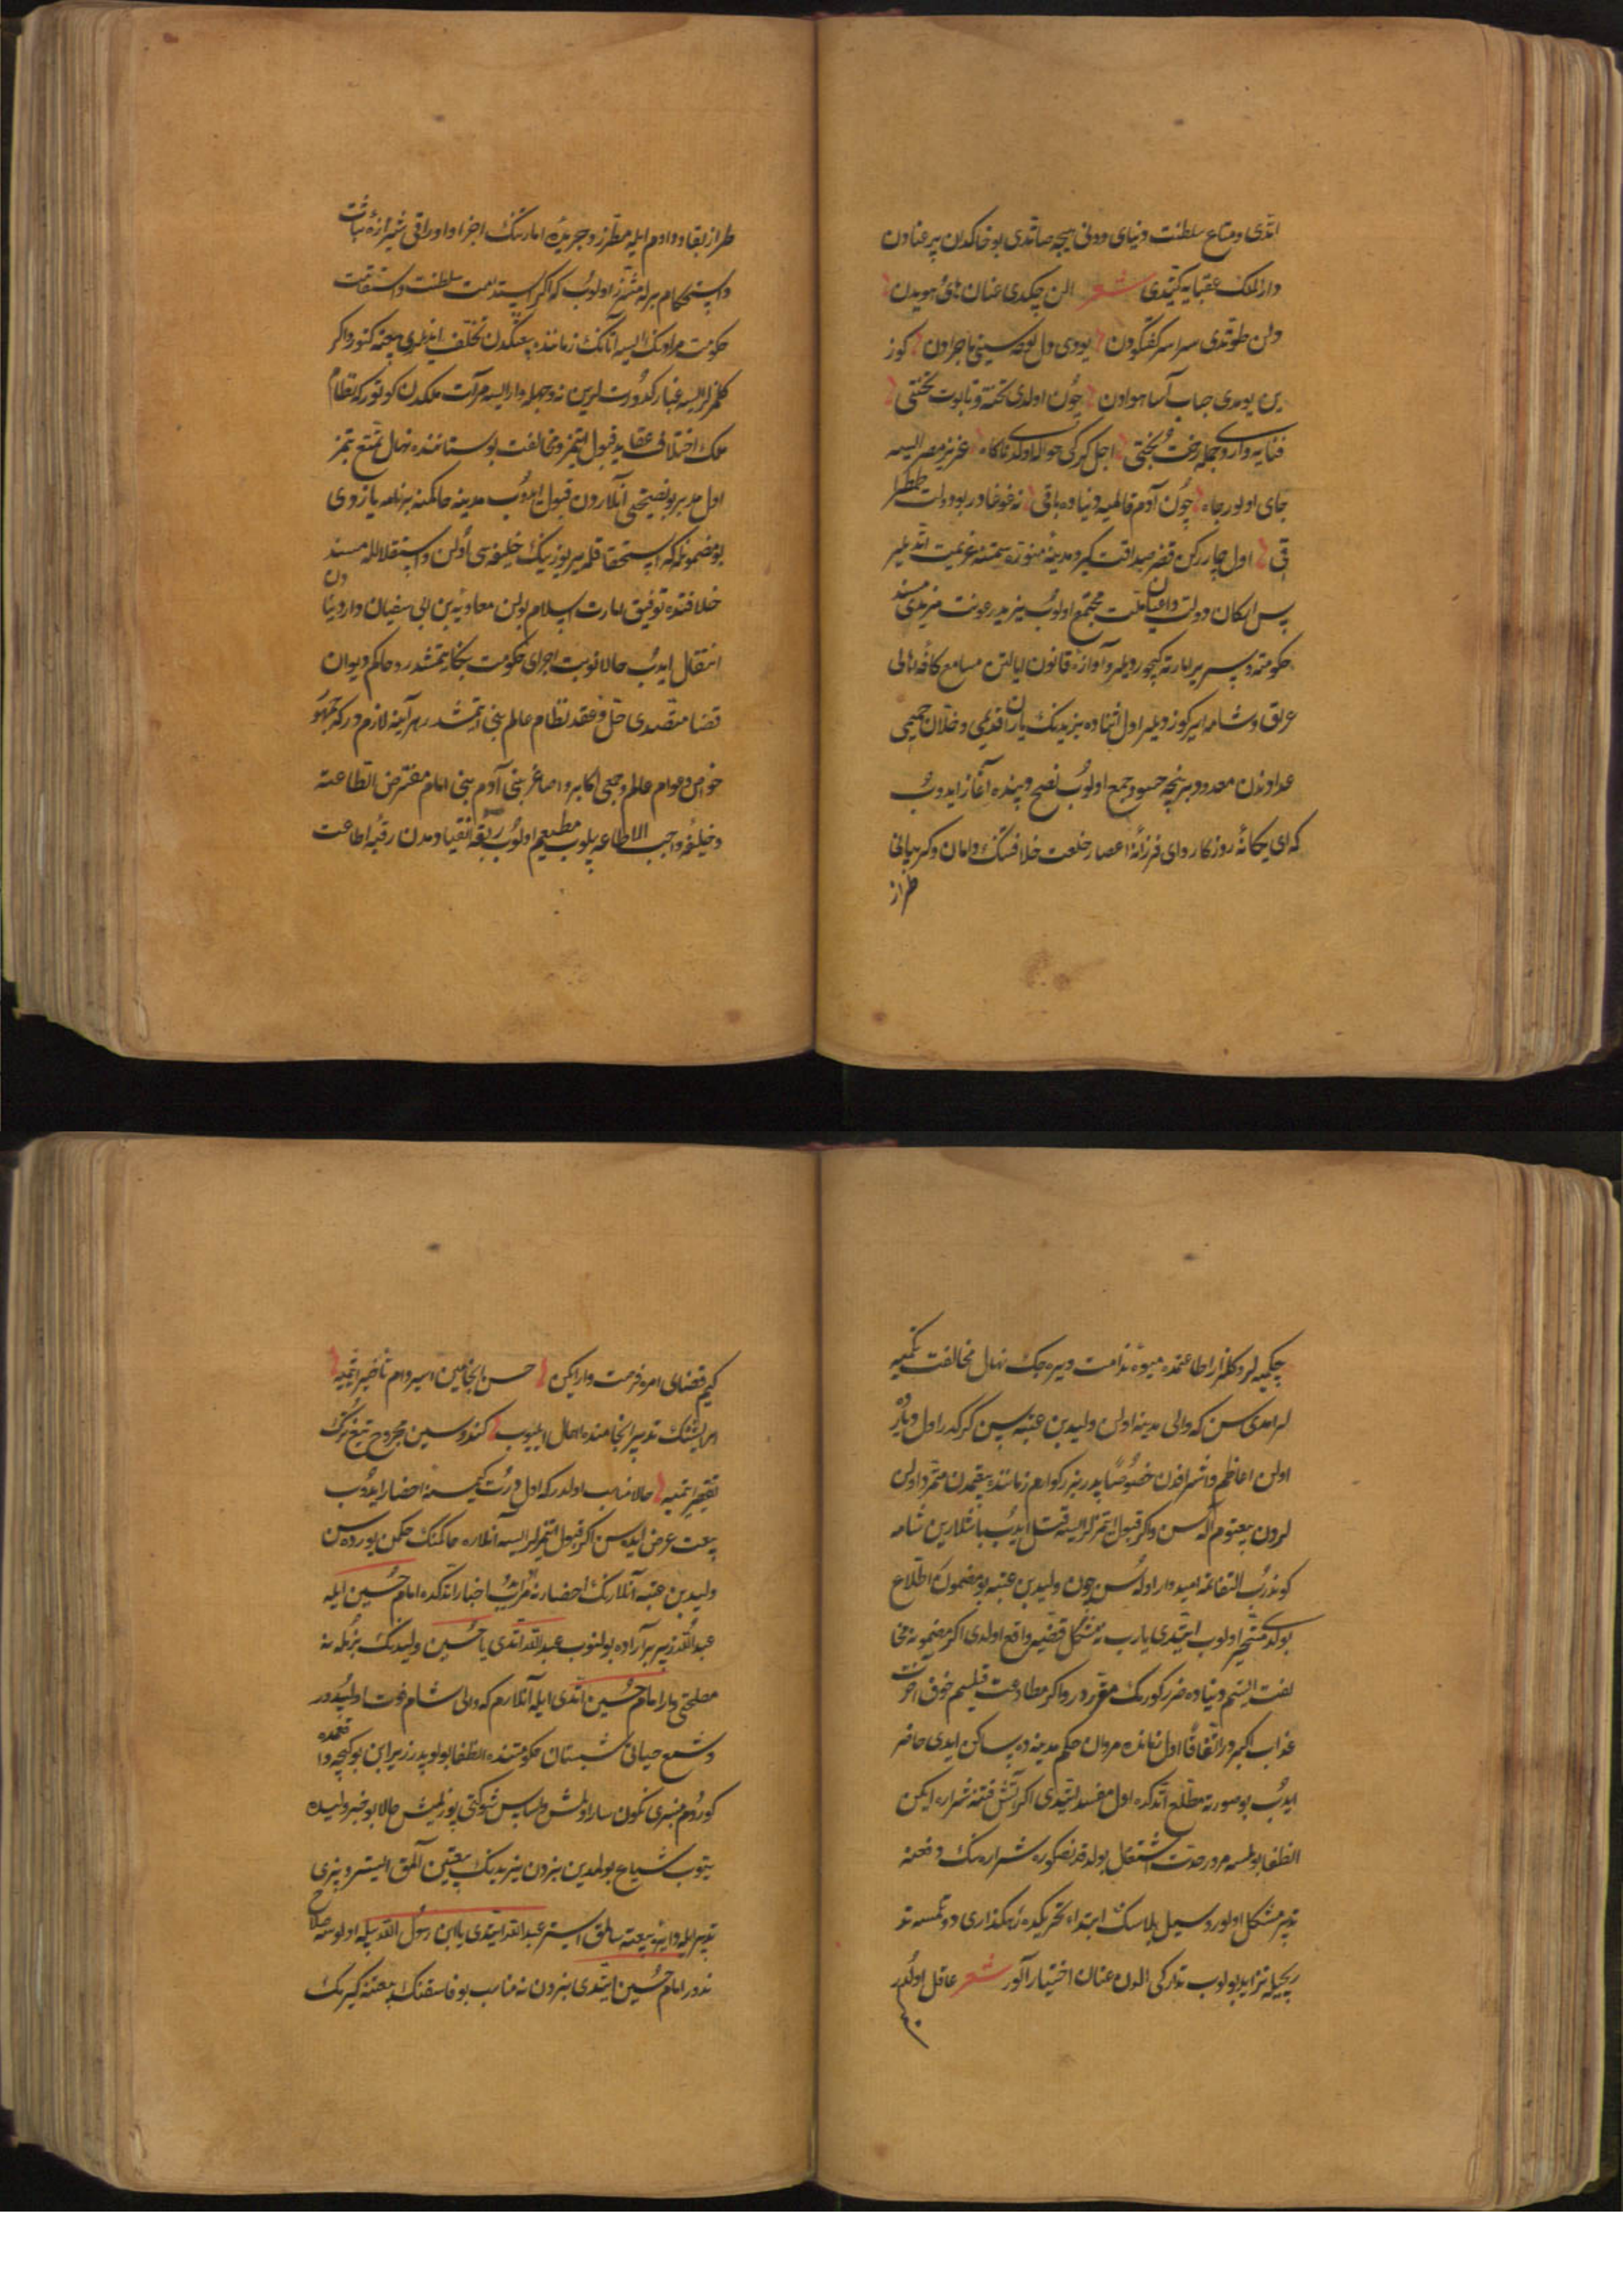 اتدی و متاع سلطنت دنیای دونی هیچه صاتدی بو خاکدان پر عنادن
دار الملک عقبایه کیتدی شعر الن چکدی عنان های هویدن
دلن طوتدی سراسر کفتکودن یودی دل لوحه سینی ماجرادن کوز
ین یومدی حباب آسا هوادن چون اولدی تخته تابوت تختی
فنایه واردی جمله رخت و بختی اجل کرکی حواله اولدی ناکاه عزیز مصر ایسه
جای اولور چاه چون آدم قالمیه دنیاده باقی نه غوغادر بو دولت طمطرا
قی اول چار رکن قصر صداقت کیرو مدینه منوره سمتنه عزیمت اتدیلر
پس ارکان دولت و اعیان ملت مجتمع اولوب یزید پر رعونت مزیدی مسند
حکومته و سریر امارته کچوردیلر و آوازه قانون ایالتن مسامع کافه اهالی
عراق و شامه ایرکوزدیلر اول اثناده یزیدنک یاران قدیمی و خلان حمیمی
عدادندن معدود بر نیچه حسود جمع اولوب نصح و پنده آغاز ایدوب
که ای یکانه روزکار و ای فرزانه اعصار خلعت خلافتنک دامان و کریبانی
طراز
طراز بقا و دوام ایله مطرز و جریده امارتنک اجزا و اوراقی شیرازه ثبات
و استحکام برله اولوب که اکر استدامت سلطنت و استقامت
حکومت مرادنک ایسه آتانک زماننده بیعتکدن تخلف ایدنلری بیعته کتور و اکر
کلمزلر ایسه غبار کدورتلرین نه وجهله وار ایسه مرآت ملکدن کوتور که نظام
ملک اختلاف عقاید قبول ایتمز و مخالفت بوستاننده نهال تمتع بتمز
اول مدبر بو نصیحتی آنلاردن قبول ایدوب مدینه حاکمنه بر نامه یازدی
بو مضمونله که استحقاقله پیریوزینک خلیفه سی اولن و استقلالله مسند
خلافتده توفیق امارت اسلام بولن معاویه بن ابی سفیان دار دنیادن
انتقال ایدوب حالا نوبت اجرای حکومت بکا یتمشدر و حاکم دیوان
قضا متصدی حل و عقد نظام عالم بنی اتمشدر هر آینه لازم در که جمهور
خواص و عوام عالم و جمیع اکابر و اصاغر بنی آدم بنی امام مفترض الطاعه
و خلیفه واجب الاطاعه بیلوب مطیعم اولوب ربقه انقیادمدن رقبه اطاعت
چکمیه لر و کلزار اطاعتمده میوه ندامت ویره جک نهال مخالفت تکمیه
لر امدی سن که والی مدینه اولن ولید بن عتبه سین کرکدر اول دیارده
اولن اعاظم و اشرافدن خصوصا پدر بزرکوارم زماننده بیعتدن متمرد اولن
لردن بیعتوم آله سن و اکر قبول ایتمزلر ایسه قتل ایدوب باشلارین شامه
کوندروب التفاتمه امیدوار اوله سن چون ولید بن عتبه بو مضمونه اطلاع
بولدی متحیر اولوب ایتدی یا رب نه مشکل قضیه واقع اولدی اکر مضمون نامه مخا
لفت ایتسم دنیاده ضرر کورمک مقرر در و اکر مطاوعت قیلسم خوف آخرت
عذاب اکبر در اتفاقا اول زمانده مروان حکم مدینه ده ساکن ایدی حاضر
ایدوب بو صورته مطلع اتدکده اول مفسد ایتدی اکر آتش فتنه شراره ایکن
انطفا بولمسه مرور مدت اشتعال بولدقدنصکره شراره سنک دفعنه
تدبیر مشکل اولور و سیل بلاسنک ابتداء تحریکده رهکذاری دوتمسه تد
ریجیله تزاید بولوب تدارکی الدن عنان اختیار آلور شعر عاقل اولدر
کیم قضای امره فرصت وار ایکن حسن انجامین اسیر دام تاخیر ایتمیه
ایشنک تدبیر انجامنده اهمال ایلیوب کندوسین مجروح تیغ
تقصیر ایتمیه حالا مناسب اولدر که اول دورت کیمسنه احضار ایدوب
بیعت عرض ایده سن اکر قبول ایتمزلر ایسه آنلاره حاکمنک حکمن یورده سن
ولید بن عتبه آنلارنک احضارنه فرمان ایدوب اخبار اتدکده امام حسین ایله
عبد الله زبیر بر آراده بولنوب عبد الله اتدی یا حسین ولیدنک بزمله نه
مصلحتی وار امام حسین اتدی ایله آنلارم که والی شام فوت اولیبدر
و شمع حیاتی شبستان حکومتنده انطفا بولوبدر زیرا بن بو کیچه واقعمده
کوردم منبری نکون سار اولمش و لباس شوکتی پوزلمش حالا بو خبر ولیده
یتوب شایع بولمدین بزدن یزیدنک بیعتین آلمق ایستر و بزی
تدبیر ایله دایره بیعته سالمق ایستر عبد الله ایتدی یا ابن رسول الله بیله اولورسه صلاح
ندور امام حسین ایتدی بزدن نه مناسب بو فاسقنک بیعتنه کیرمک